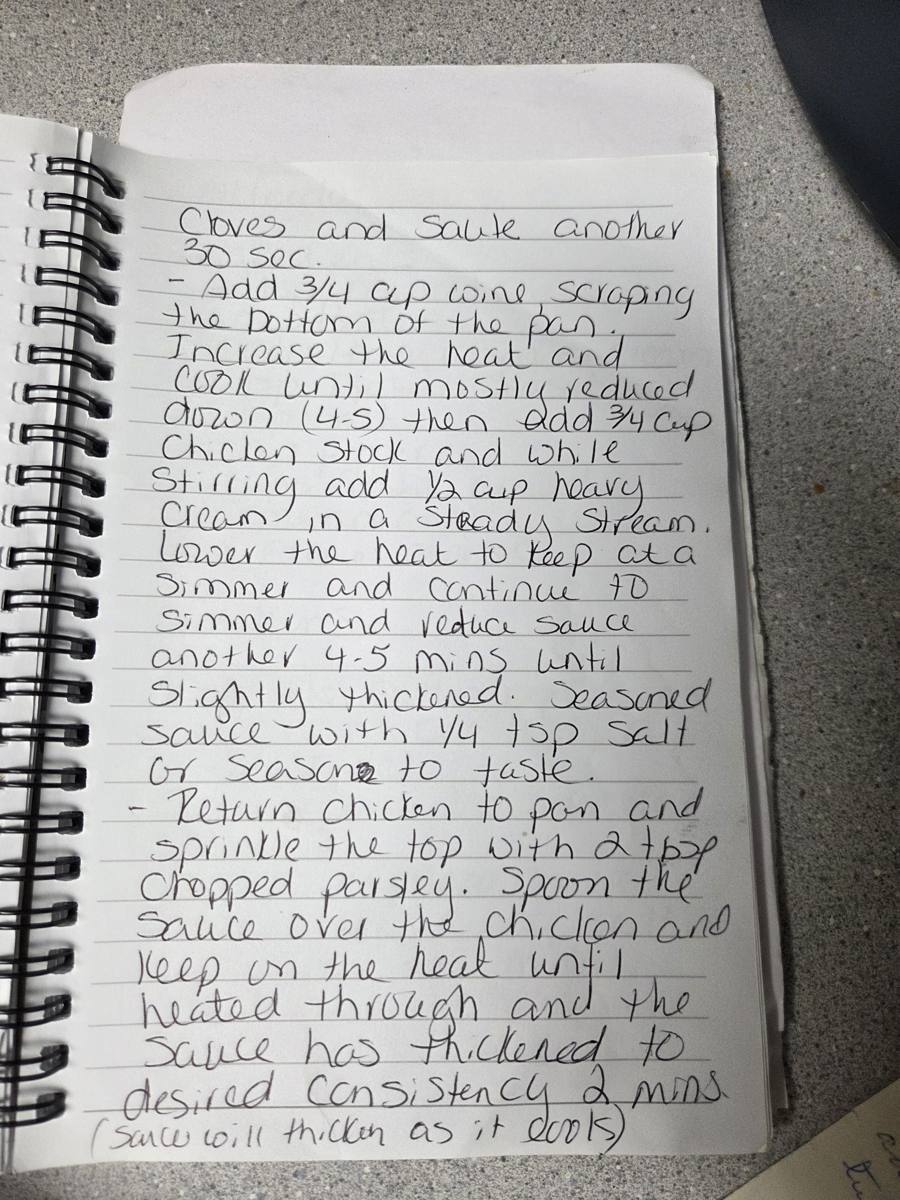 Cloves and saute another
30 sec.
- Add 3/4 cup wine, scraping
the bottom of the pan.
Increase the heat and
cook until mostly reduced
down (4-5) then add 3/4 cup
Chicken stock and while
Stirring add 1/2 cup heavy
cream in a steady stream.
Lower the heat to keep at a
simmer and continue to
simmer and reduce sauce
another 4-5 mins until
slightly thickened. Seasoned
sauce with 1/4 tsp salt
or season to taste.
- Return chicken to pan and
sprinkle the top with 2 tbsp
chopped parsley. Spoon the
sauce over the chicken and
keep on the heat until
heated through and the
sauce has thickened to
desired consistency 2 mins.
(sauce will thicken as it cools)